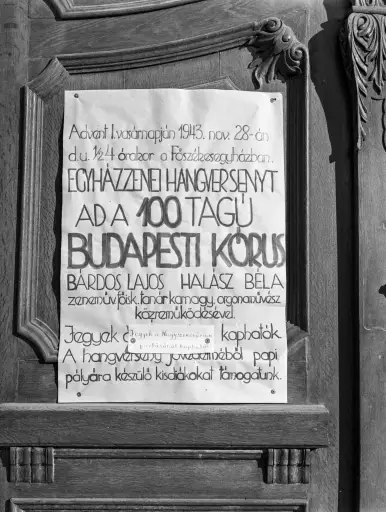 Advent I. vasárnapján 1943. nov. 28-án
d.u. ½4 órakor a Főszékesegyházban.
EGYHÁZZENEI HANGVERSENYT
AD A 100 TAGÚ
BUDAPESTI KÓRUS
BÁRDOS LAJOS HALÁSZ BÉLA
zeneműv. főisk. tanár karnagy, orgonaművész
közreműködésével.
Jegyek kaphatók.
Jegyek a Nagyszeminárium
portásánál kaphatók
A hangverseny jövedelméből papi
pályára készülő kisdiákokat támogatunk.